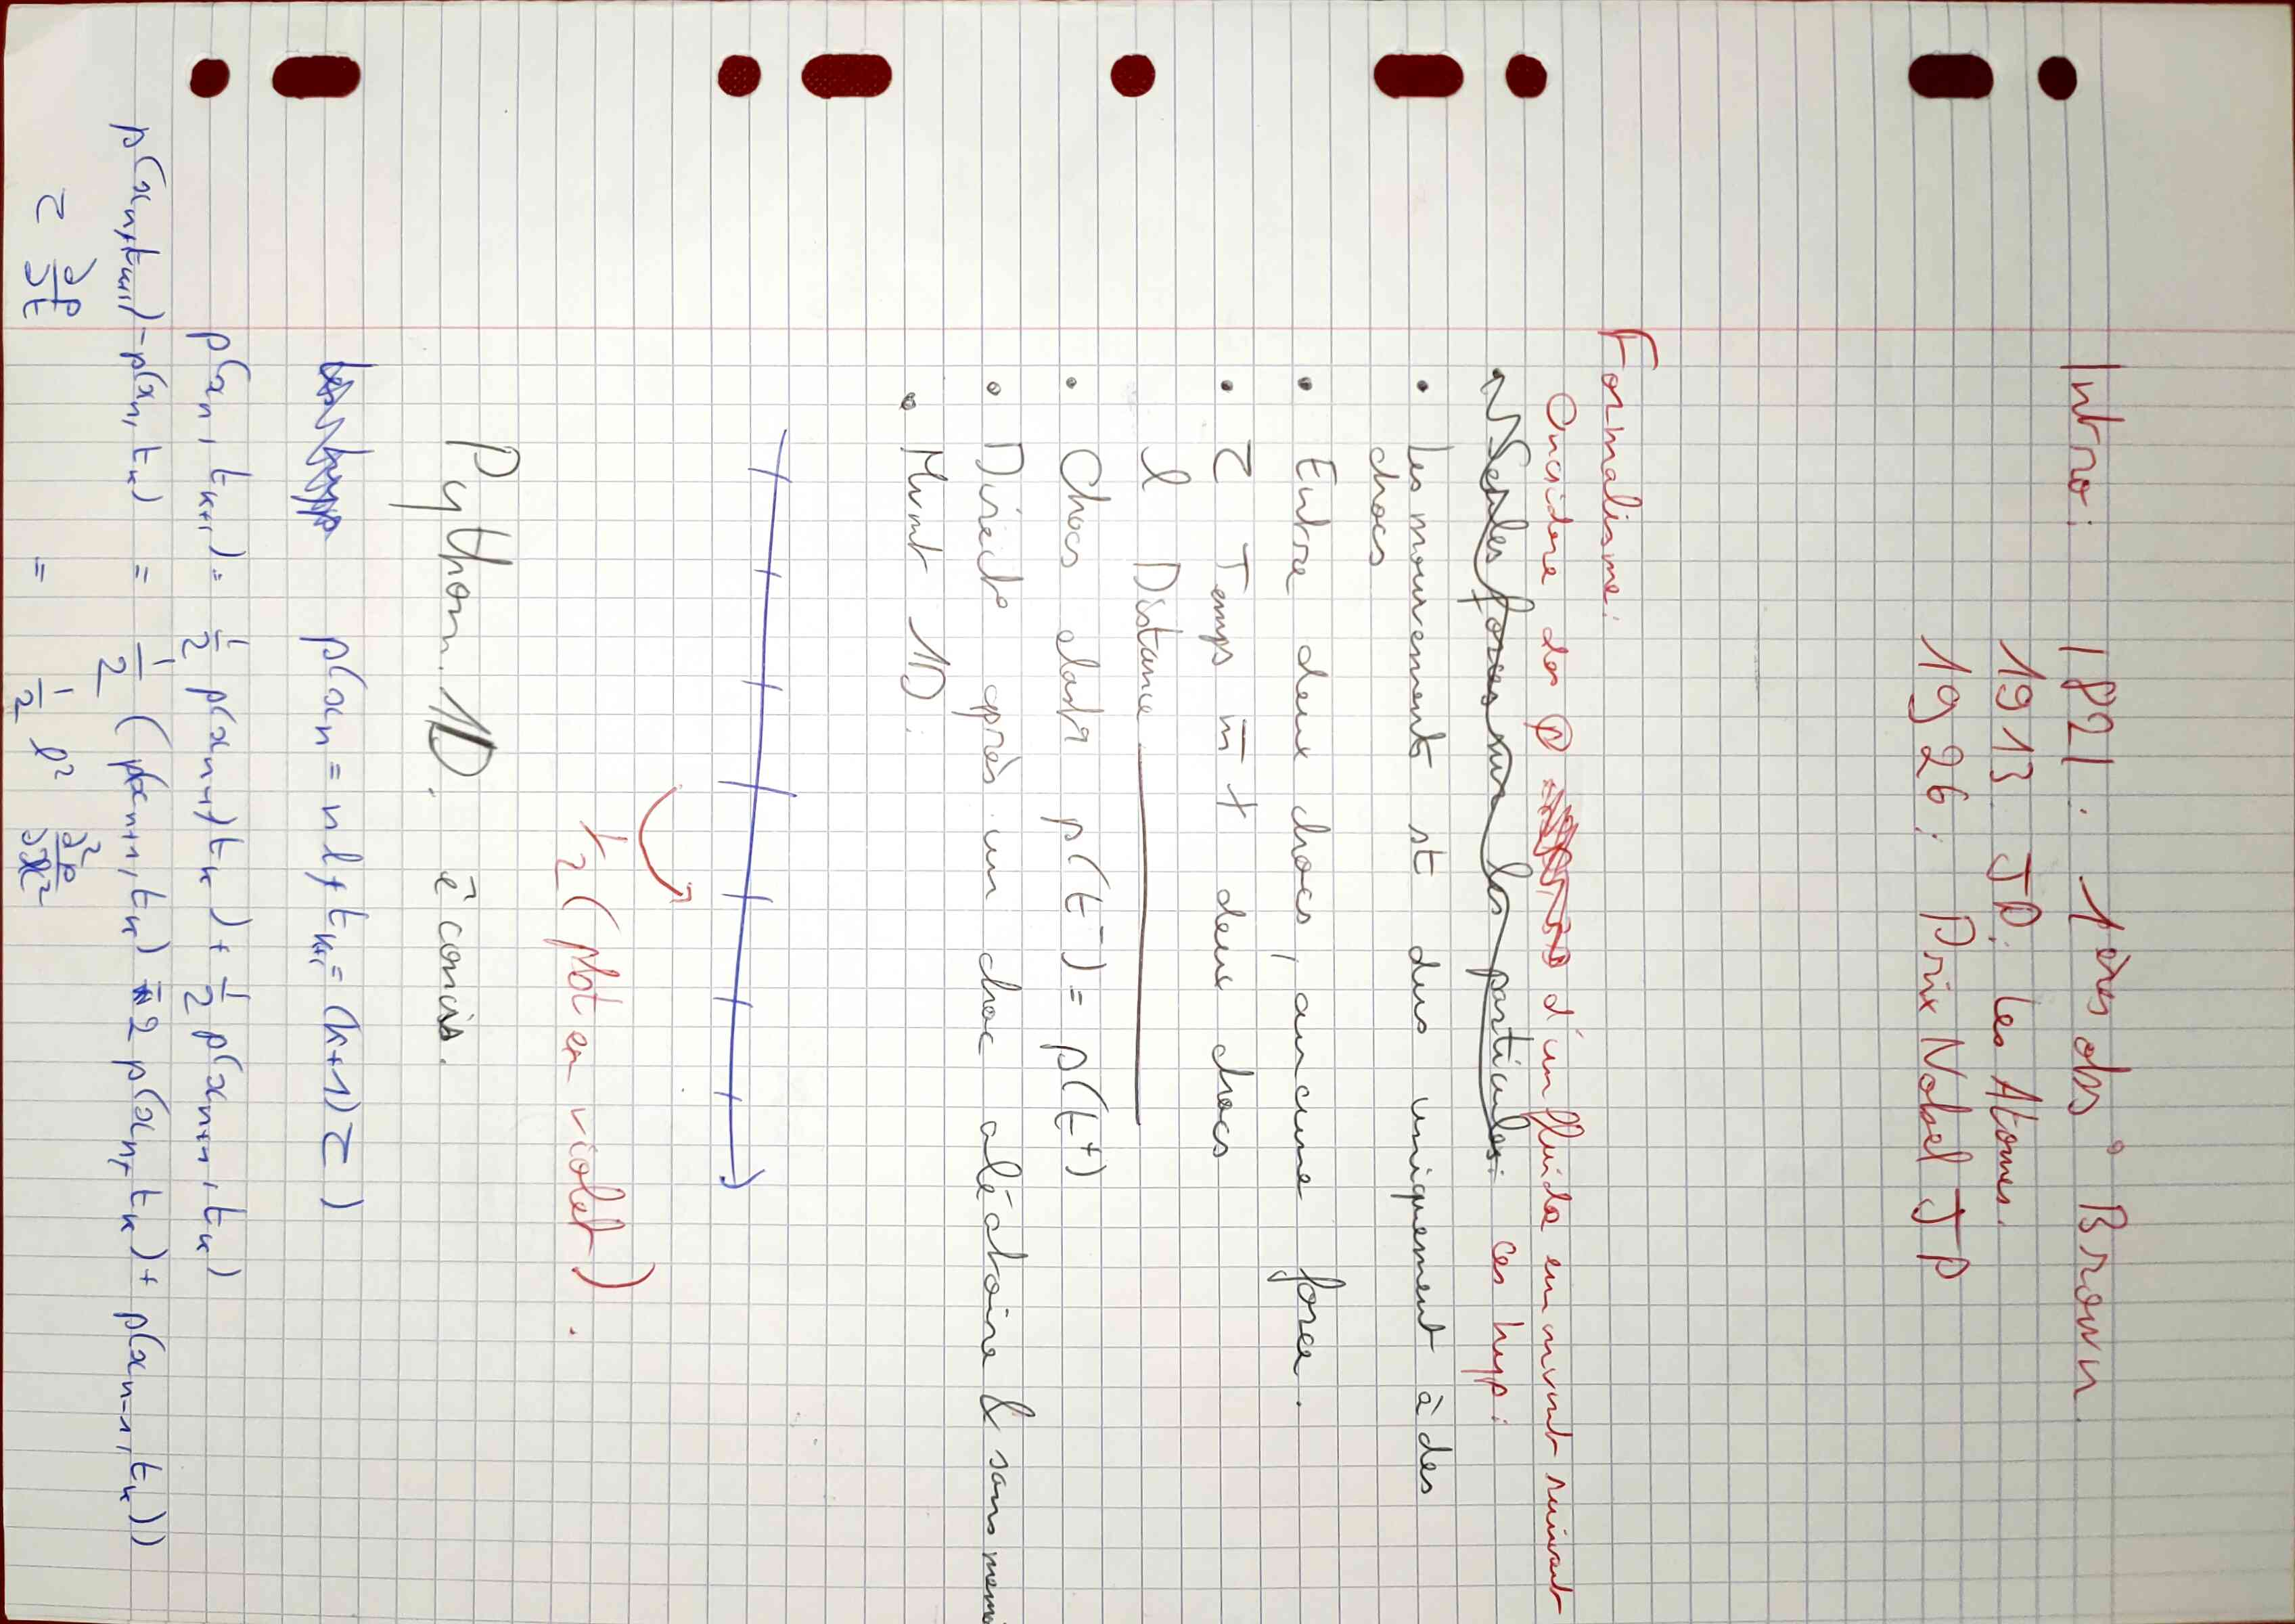 Intro: 1821 : 1ères obs° Brown.
1913 JP: Les Atomes.
1926: Prix Nobel JP
Formalisme:
Considere des p d'un fluide en mvmt suivant
Seules forces sur les particules: ces hyp:
• Les mouvements st dus uniquement à des
chocs
• Entre deux chocs, aucune force.
• τ Temps m̄ t deux chocs
l Distance
• Chocs elastq p(t⁻) = p(t⁺)
• Directo après un choc aléatoire & sans memo
• Mvmt 1D.
1/2 (plot en violet).
Python 1D. ē concis.
p(xₙ = nl, tₖ₊₁ = (k+1)τ)
p(xₙ, tₖ₊₁) = 1/2 p(xₙ₋₁, tₖ) + 1/2 p(xₙ₊₁, tₖ)
p(xₙ, tₖ₊₁) - p(xₙ, tₖ) = 1/2 (p(xₙ₊₁, tₖ) - 2 p(xₙ, tₖ) + p(xₙ₋₁, tₖ))
τ ∂p/∂t = 1/2 l² ∂²p/∂x²